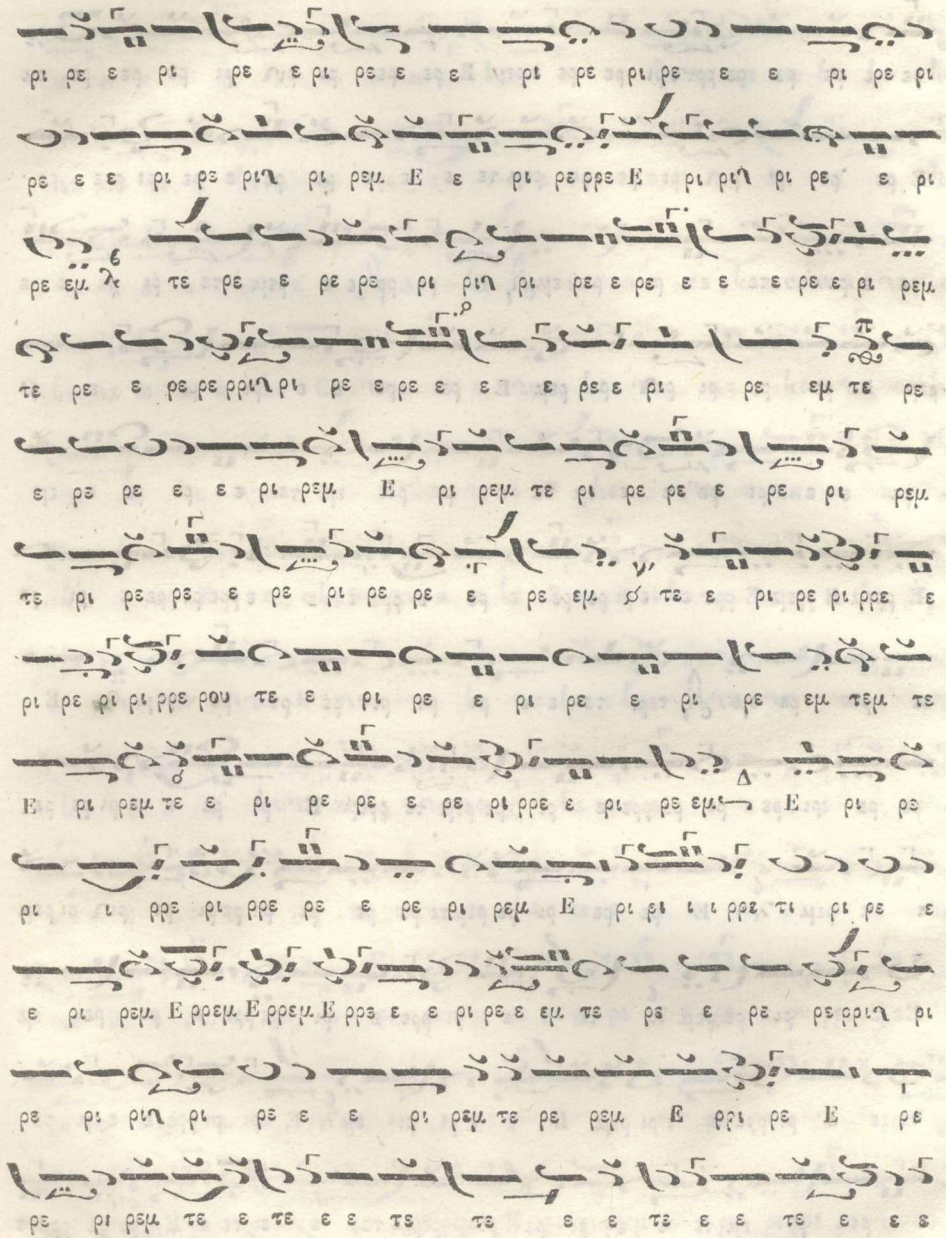 ρι ρε ε ρι ρε ε ρι ρε ε ε ε ρι ρε ρι ρε ε ε ρι ρε ρι
ρε ε ε ρι ρε ρι ρεμ Ε ε ρι ρε ρρε Ε ρι ρι ρε ε ρι
ρε εμ τε ρε ε ρε ρε ρι ρι ρε ε ρε ε ε ε ε ρε ε ρι ρεμ
τε ρε ε ρε ρε ρρι ρι ρε ε ρε ε ε ε ρε ε ρι ρε εμ τε ρε
ε ρε ρε ε ε ρι ρεμ Ε ρι ρεμ τε ρι ρε ρε ε ρε ρι ρεμ
τε ρι ρε ρε ε ρε ρι ρε ρε ε ρε εμ τε ε ρι ρε ρι ρρε ε
ρι ρε ρι ρι ρρε ρου τε ε ρι ρε ε ρι ρε ε ρι ρε εμ τεμ τε
Ε ρι ρεμ τε ε ρι ρε ρε ε ρε ρι ρρε ε ρι ρε εμ Δ Ε ρι ρε
ρι ι ρρε ρι ρρε ρε ε ρε ρι ρεμ Ε ρι ρι ι ρρε τι ρι ρε ε
ε ρι ρεμ Ε ρρεμ Ε ρρεμ Ε ρρε ε ε ρι ρε ε εμ τε ρε ε ρε ρρι ρι
ρε ρι ρι ρι ρε ε ε ρι ρεμ τε ρε ρεμ Ε ρρι ρε Ε ρε
ρε ρι ρεμ τε ε τε ε ε τε τε ε ε τε ε ε τε ε ε ε